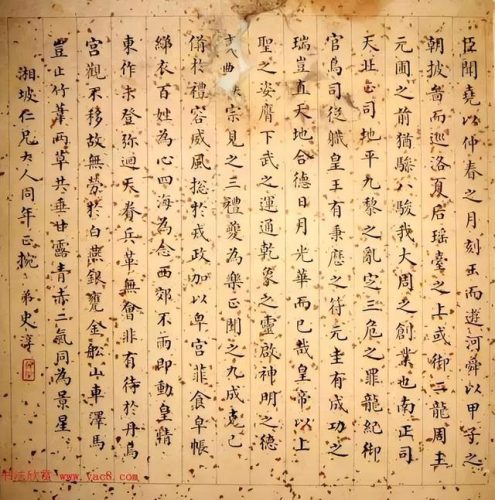 臣聞堯以仲春之月刻玉而遊河舜以甲子之
朝披啚而巡洛夏后瑤臺之上或御二龍周王
元圃之前猶驂八駿我大周之創業也南正司
天北正司地平九黎之亂定三危之罪龍紀御
官鳥司從職皇王有秉歷之符元圭有成功之
瑞豈直天地合德日月光華而已哉皇帝以上
聖之姿膺下武之運通乾象之靈啟神明之德
典宗見之三禮夔為樂正聞之九成克己
備於禮容威風総於戎政加以卑宮菲食皁帳
綈衣百姓為心四海為念西郊不雨即動皇情
東作未登彌迴天眷兵革無會非有待於丹烏
宮觀不移故無勞於白燕銀甕金船山車澤馬
豈止竹葉兩草共垂甘露青赤二氣同為景星
湘坡仁兄大人同年正腕 弟史淳
书法欣赏 www.yac8.com